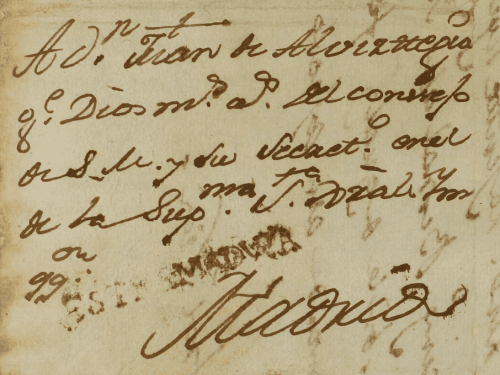 A Dn. Juan de Albiztegui
ge. Dios ms. as. del consejo
de S.M. y su Secreto. en el
de la Supma. Ta. Gral. ym
on
gg
ESTREMADURA
Madrid